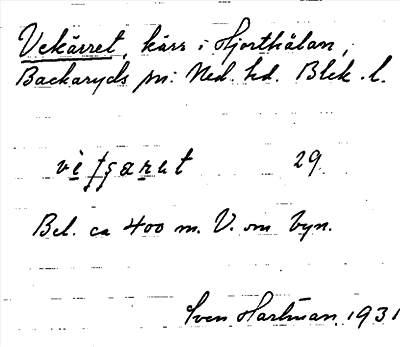 Vekärret, kärr i Hjorthålan,
Backaryds sn: Ned. hd. Blek. l.
29
Bel. ca 400 m. V. om byn.
Sven Hartman 1931